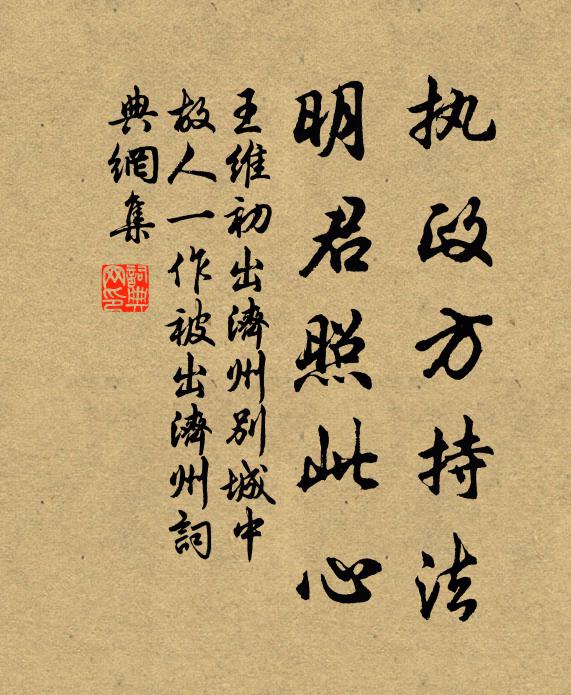 执政方持法
明君照此心
王维初出濟州别城中
故人一作被出濟州詞
典網集
詞典网印